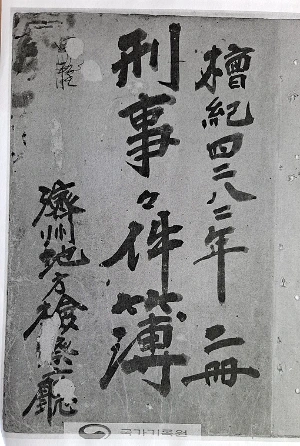 檀紀四二八二年 二冊
刑事々件簿
濟州地方檢察廳
국가기록원